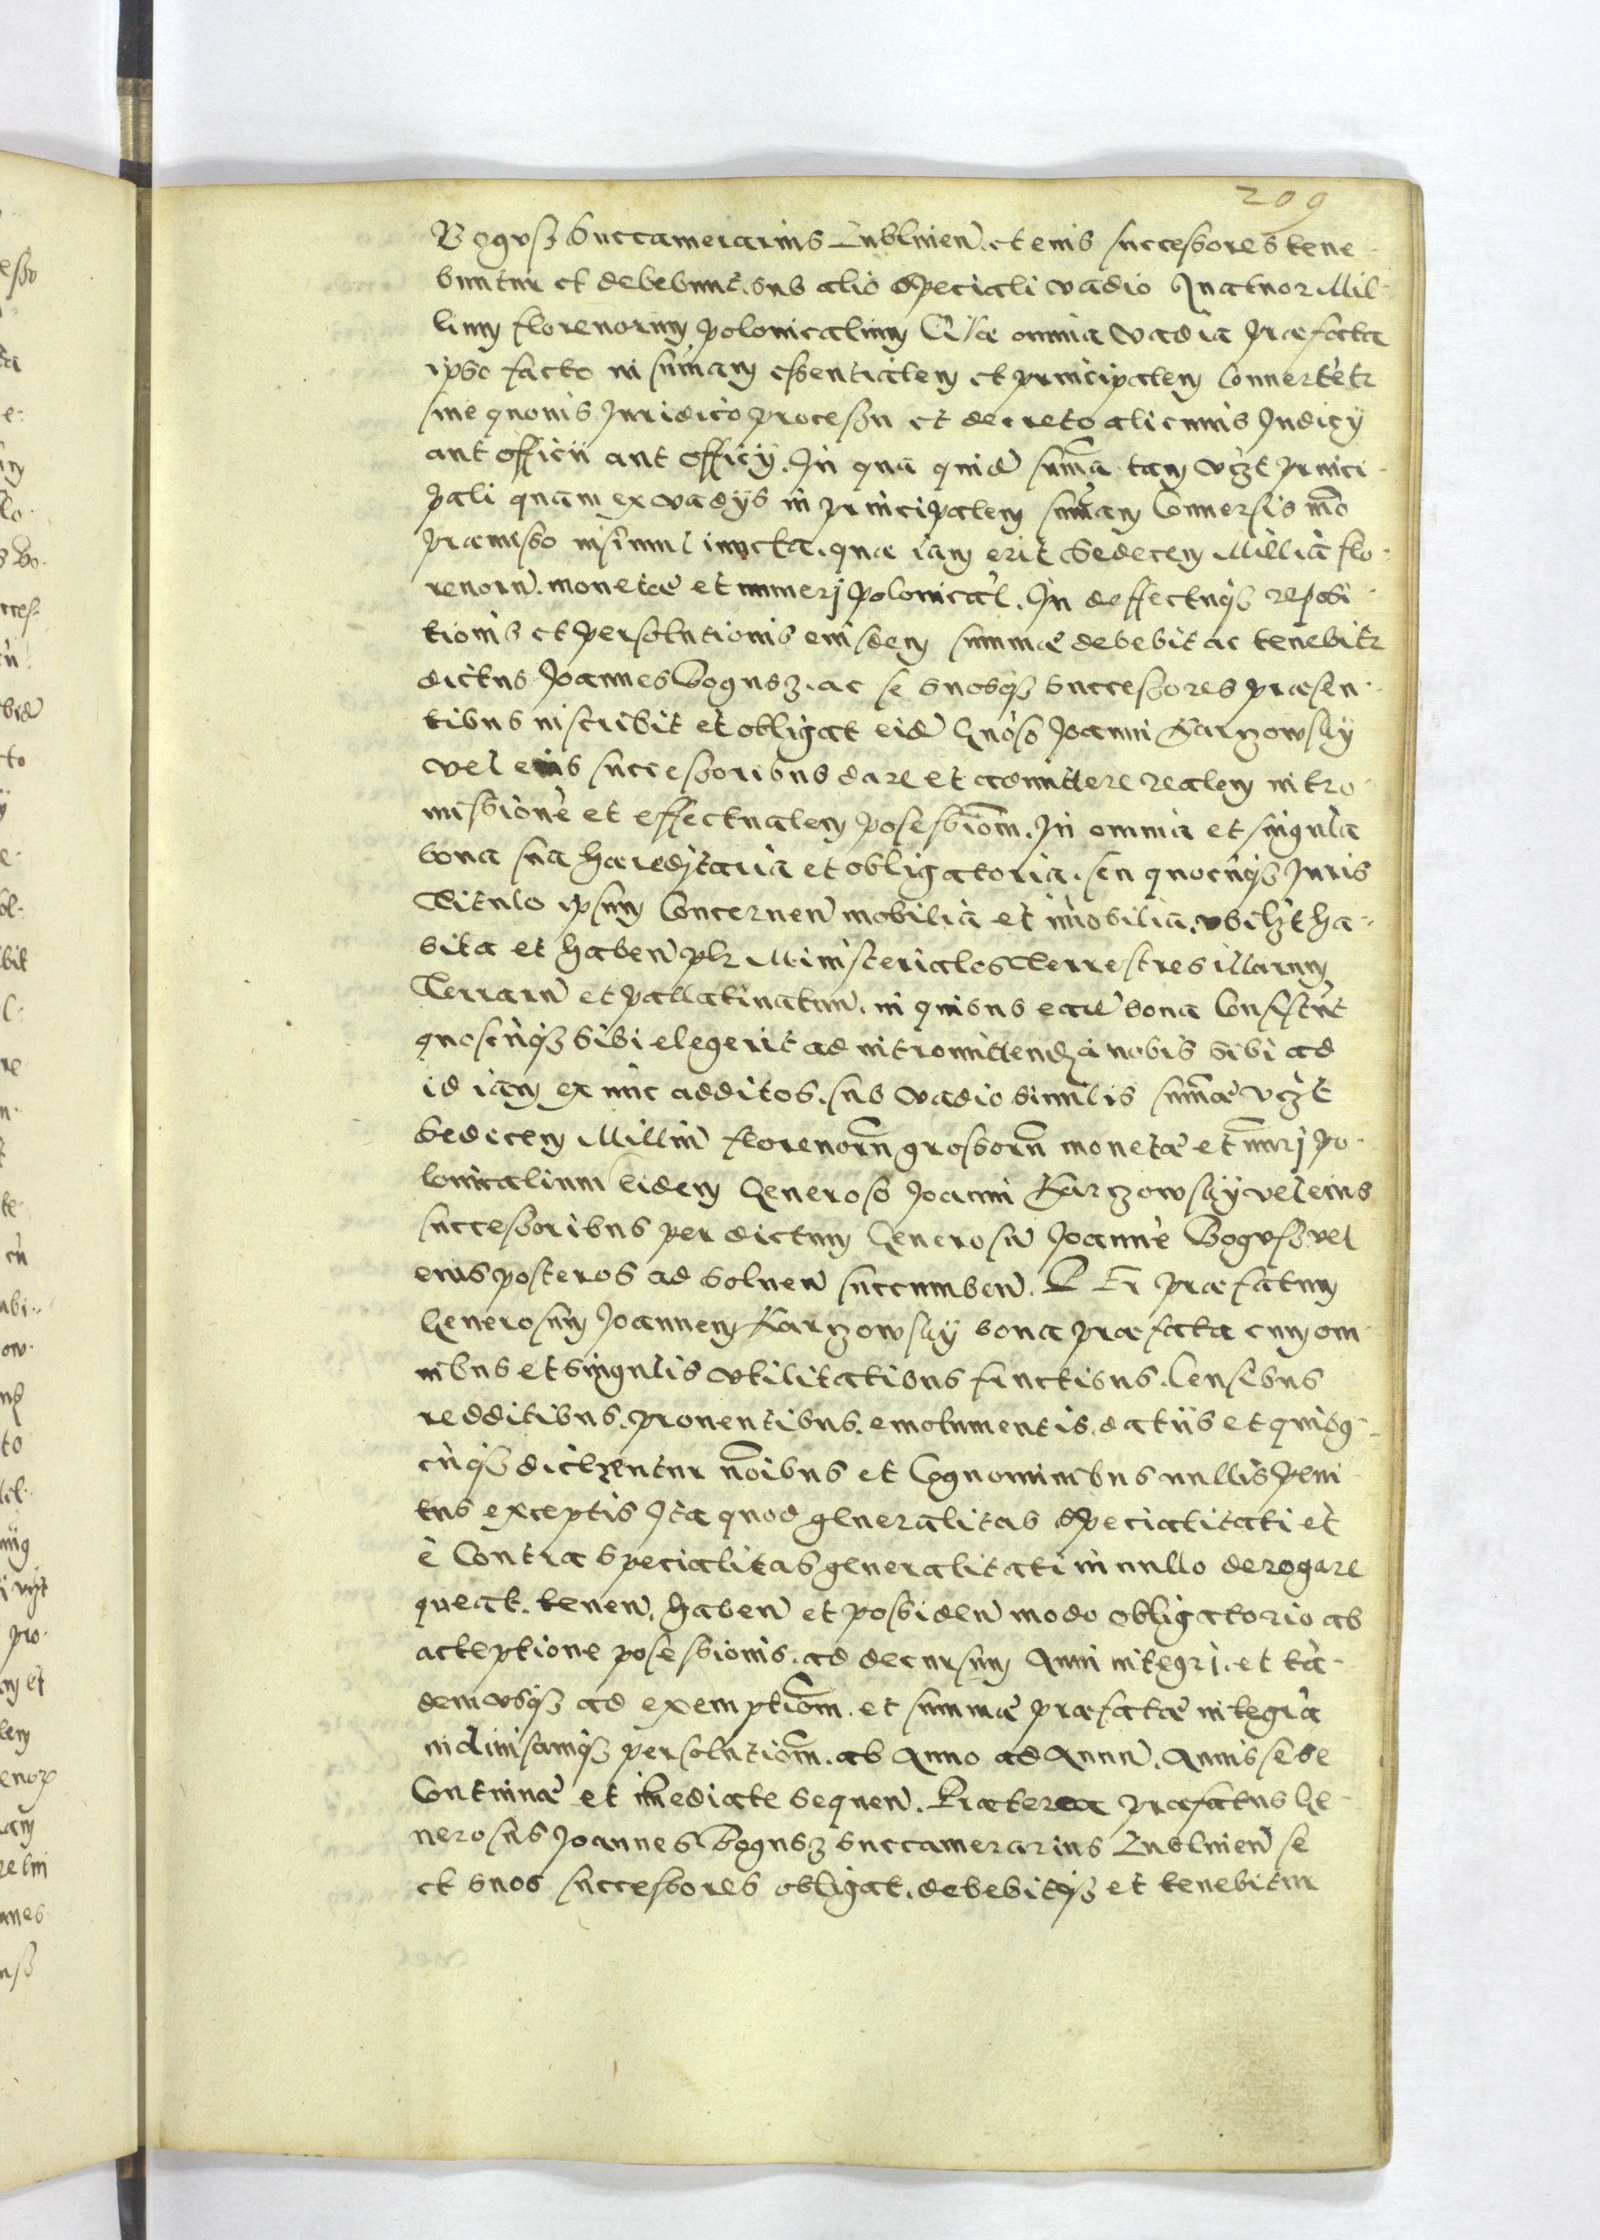 209
Bogusz Succamerarius Lublinen. et eius successores tene
buntur et debebunt. sub alio speciali vadio Quatuor Mil
lium florenorum polonicalium Quae omnia vadia praefata
ipso facto in summam essentialem et principalem Convertetr
sine quovis Juridico processu et decreto alicuius Judicÿ
aut officii aut officÿ. In qua quidē summa tam vcȝt princi
pali quam ex vadÿs in principalem summam Conversis mō
praemisso insimul iuncta. quae iam erit Sedecem Millia flo
renorū. monetae et numerj polonicāl. In deffectuqȝ reposi
tionis et persolutionis eiusdem summae debebit ac tenebitr
dictus Joannes Bogusz. ac se suosqȝ successores praesen
tibus inscribit et obligat eidē Gnoso Joanni Karzowskÿ
vel eius successoribus dare et admittere realem intro
missionē et effectualem posessiōm. In omnia et singula
bona sua haereditaria et obligatoria. seu quocūqȝ Juris
Titulo ipsum Concernen̄ mobilia et im̄obilia. vbilȝt ha
bita et haben̄ p Ministeriales Terrestres illarum
Terrarū et pallatinatuū. in quibus eadē bona Consistūt
quoscūqȝ sibi elegerit ad intromittendȝ a nobis sibi ad
id iam ex nūc additos. sub vadio similis sum̄ae vcȝt
Sedecem Milliū florenorū grossorū monetae et nūrj po
lonicalium Eidem Generoso Joanni Karzowskÿ vel eius
successoribus per dictum Generosū Joannē Bogusz vel
eius posteros ad soluen̄ succumben̄. PEr praefatum
Generosum Joannem Karzowskÿ bona praefata cum om
nibus et singulis vtilitatibus fructibus. Censibus
redditibus. proventibus. emolumentis. datiis et quibg
cūqȝ dicerentur nōibus et Cognominibus nullis peni
tus exceptis Ita quod generalitas specialitati et
è Contra specialitas generalitati in nullo derogare
queat. tenen̄. haben̄ et possiden̄ modo obligatorio ab
acceptione posessionis. ad decursum Anni integri. et ta
dem vsqȝ ad exemptiōm. et summae praefatae integrā
indiuisamqȝ persolutiōm. ab Anno ad Annū. Annis se se
Continuē et im̄ediate sequen̄. Praeterea praefatus Ge
nerosus Joannes Bogusz succamerarius Lublinen̄ se
et suos successores obligat. debebitqȝ et tenebitur